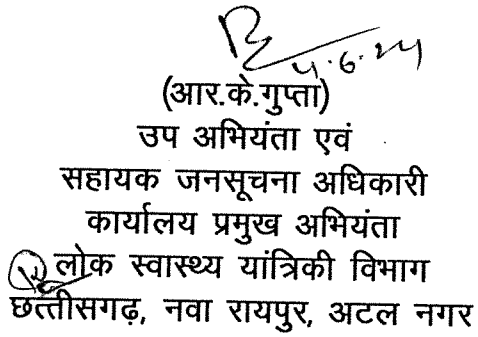 4.6.24
(आर.के.गुप्ता)
उप अभियंता एवं
सहायक जनसूचना अधिकारी
कार्यालय प्रमुख अभियंता
लोक स्वास्थ्य यांत्रिकी विभाग
छत्तीसगढ़, नवा रायपुर, अटल नगर